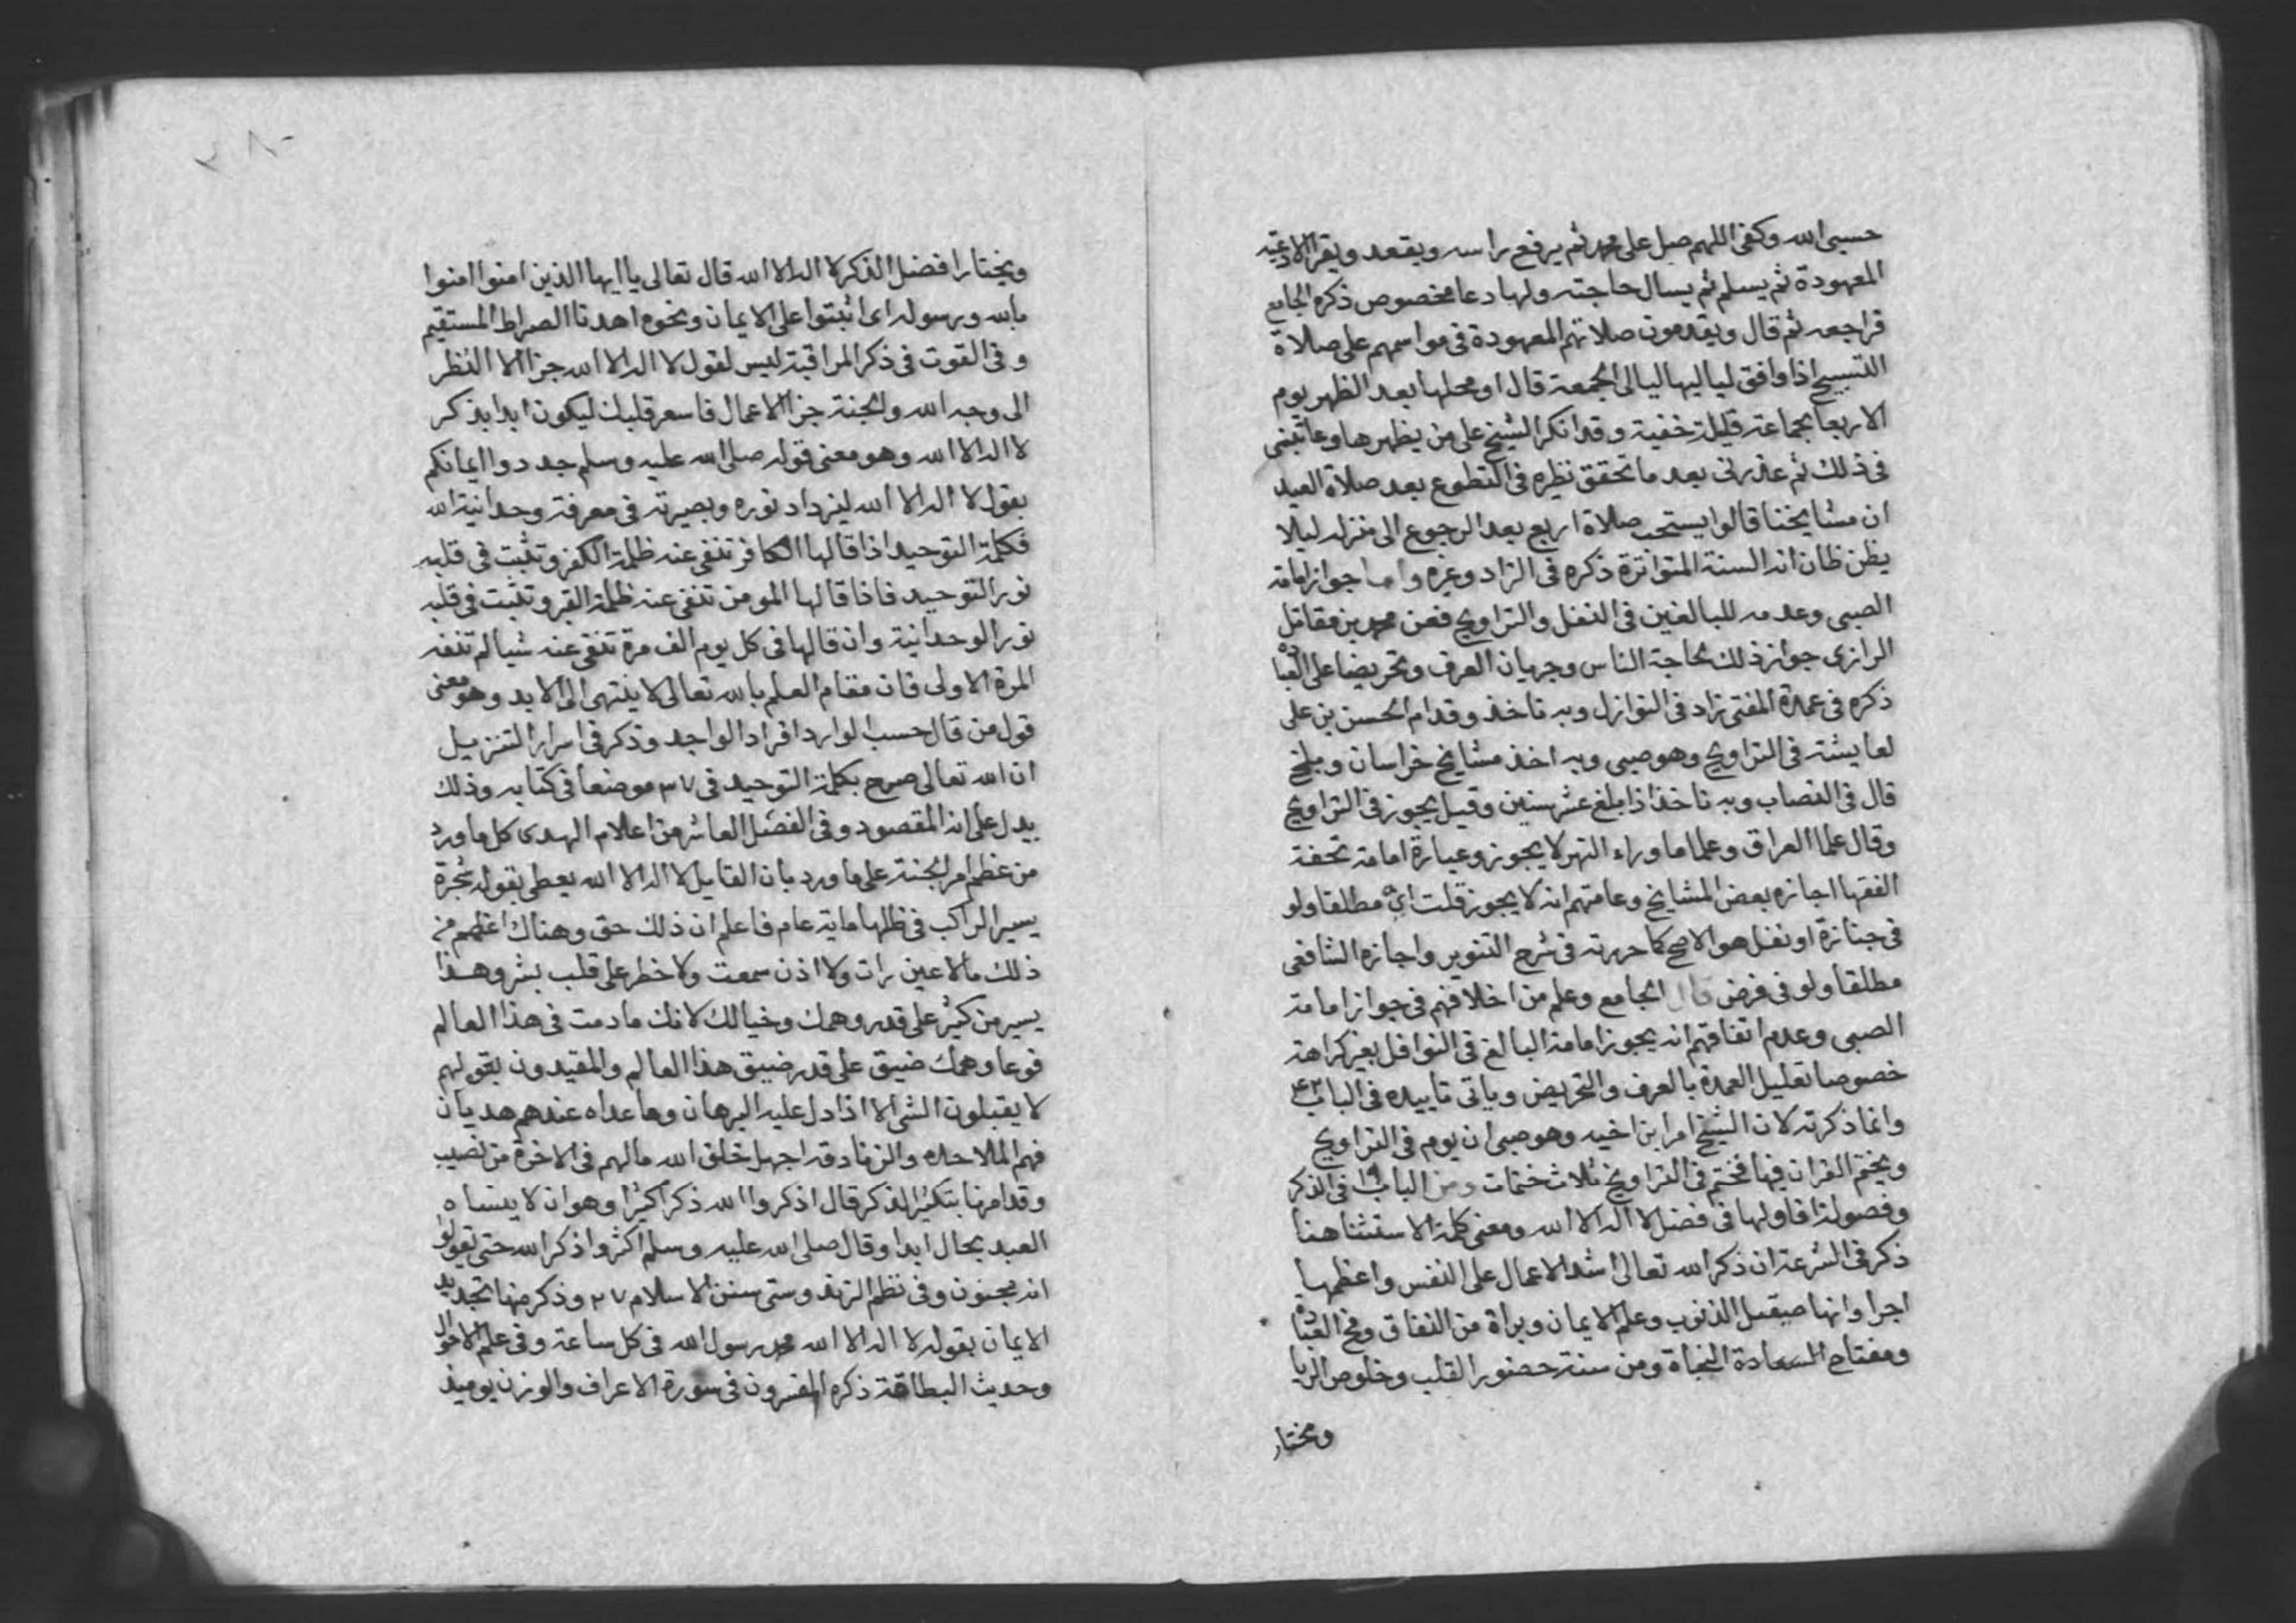 حسبى الله وكفى اللهم صل على محمد ثم يرفع راسه ويقعد ويقرا الادعية
المعهودة ثم يسلم ثم يسال حاجته ولها دعا مخصوص ذكره الجامع
فراجعه ثم قال ويقدمون صلاتهم المعهودة فى مواسمهم على صلاة
التسبيح اذا وافق لياليها ليالى الجمعة قال او محلها بعد الظهر يوم
الاربعا بجماعة قليلة خفية وقد انكر الشيخ على من يظهرها وعاتبنى
فى ذلك ثم عذرنى بعد ما تحقق نظيره فى التطوع بعد صلاة العيد
ان مشايخنا قالوا يستحب صلاة اربع بعد الرجوع الى منزله ليلا
يظن ظان انه السنة المتواترة ذكره فى الزاد وغيره واما جواز امامة
الصبى وعدمه للبالغين فى النفل والتراويح فعن محمد بن مقاتل
الرازى جواز ذلك لحاجة الناس وجريان العرف وتحريضا على العبادة
ذكره فى عمدة المفتى زاد فى النوازل وبه ناخذ وقد ام الحسن بن على
لعايشة فى التراويح وهو صبى وبه اخذ مشايخ خراسان وبلخ
قال فى النصاب وبه ناخذ اذا بلغ عشر سنين وقيل يجوز فى التراويح
وقال علما العراق وعلما ما وراء النهر لا يجوز وعبارة امامة تحفة
الفقها اجازه بعض المشايخ وعامتهم انه لا يجوز قلت اى مطلقا ولو
فى جنازة او نفل هو الاصح كما حررته فى شرح التنوير واجازه الشافعى
مطلقا ولو فى فرض قال الجامع وعلم من اخلافهم فى جواز امامة
الصبى وعدم اتفاقهم انه يجوز امامة البالغ فى النوافل بغير كراهة
خصوصا تعليل العمدة بالعرف والتحريض وياتى تاييده فى الباب ٤٣
وانما ذكرته لان الشيخ امر ابن اخيه وهو صبى ان يوم فى التراويح
ويختم القران فيها فختم فى التراويح ثلاث ختمات ومن الباب فى الذكر
وفصوله فاولها فى فضل لا اله الا الله ومعنى كلمة الاستثنا هنا
ذكر فى الشرعة ان ذكر الله تعالى اشد الاعمال على النفس واعظمها
اجرا وانها صيقل الذنوب وعلم الايمان وبراة من النفاق ومخ العبادة
ومفتاح السعادة النجاة ومن سنة حضور القلب وخلوص الريا
ويختار
ويختار افضل الذكر لا اله الا الله قال تعالى يا ايها الذين امنوا امنوا
بالله ورسوله اى اثبتوا على الايمان ونحوه اهدنا الصراط المستقيم
وفى القوت فى ذكر المراقبة ليس لقول لا اله الا الله جزا الا النظر
الى وجه الله والجنة جزا الاعمال فاسعر قلبك ليكون ابدا بذكر
لا اله الا الله وهو معنى قوله صلى الله عليه وسلم جددوا ايمانكم
بقول لا اله الا الله ليزداد نوره وبصيرته فى معرفة وحدانية الله
فكلمة التوحيد اذا قالها الكافر تنفى عنه ظلمة الكفر وتثبت فى قلبه
نور التوحيد فاذا قالها المومن تنفى عنه ظلمة الفر وتثبت فى قلبه
نور الوحدانية وان قالها فى كل يوم الف مرة تنفى عنه شيا لم تنفه
المرة الاولى فان مقام العلم بالله تعالى لا ينتهى الى الابد وهو معنى
قول من قال حسب الوارد افراد الواجد وذكر فى اسرار التنزيل
ان الله تعالى صرح بكلمة التوحيد فى ٣٧ موضعا فى كتابه وذلك
يدل على انه المقصود وفى الفصل العاشر من اعلام الهدى كل ما ورد
من عظم امر الجنة على ما ورد بان القايل لا اله الا الله يعطى بقوله شجرة
يسير الراكب فى ظلها ماية عام فاعلم ان ذلك حق وهناك اعظم من
ذلك ما لا عين رات ولا اذن سمعت ولا خطر على قلب بشر وهذا
يسير من كثير على قدر وهمك وخيالك لانك ما دمت فى هذا العالم
فوعا وهمك ضيق على قدر ضيق هذا العالم والمقيدون بقولهم
لا يقبلون الشى الا اذا دل عليه البرهان وما عداه عندهم هديان
فهم الملاحده والزنادقه اجهل خلق الله مالهم فى الاخرة من نصيب
وقد امرنا بتكثير الذكر قال اذكروا الله ذكرا كثيرا وهو ان لا ينساه
العبد بحال ابدا وقال صلى الله عليه وسلم اكثروا ذكر الله حتى تقولوا
انه مجنون وفى نظم الزند وستى سنن الاسلام ٢٧ وذكر منها تجديد
الايمان بقوله لا اله الا الله محمد رسول الله فى كل ساعة وفى علم الاحوال
وحديث البطاقة ذكره المفسرون فى سورة الاعراف والوزن يوميذ